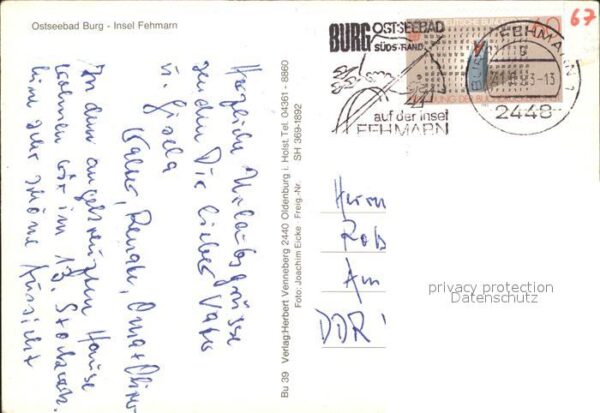 Ostseebad Burg - Insel Fehmarn
67
BURG OSTSEEBAD
SÜDSTRAND
auf der Insel
FEHMARN
FEHMARN 1
-13
2448
DEUTSCHE BUND
60
Herzliche Urlaubsgrüsse
senden Dir lieber Vater
u. Gisela
Renate, Oma + Oliver
In dem angekreuzten Hause
wohnen wir im 13. Stockwerk.
eine sehr schöne Aussicht
Bu 39 Verlag: Herbert Venneberg 2440 Oldenburg i. Holst. Tel. 04361 - 8860
Foto: Joachim Eicke Freig.-Nr. SH 369-1892
Herrn
Rob
Am
DDR
privacy protection
Datenschutz